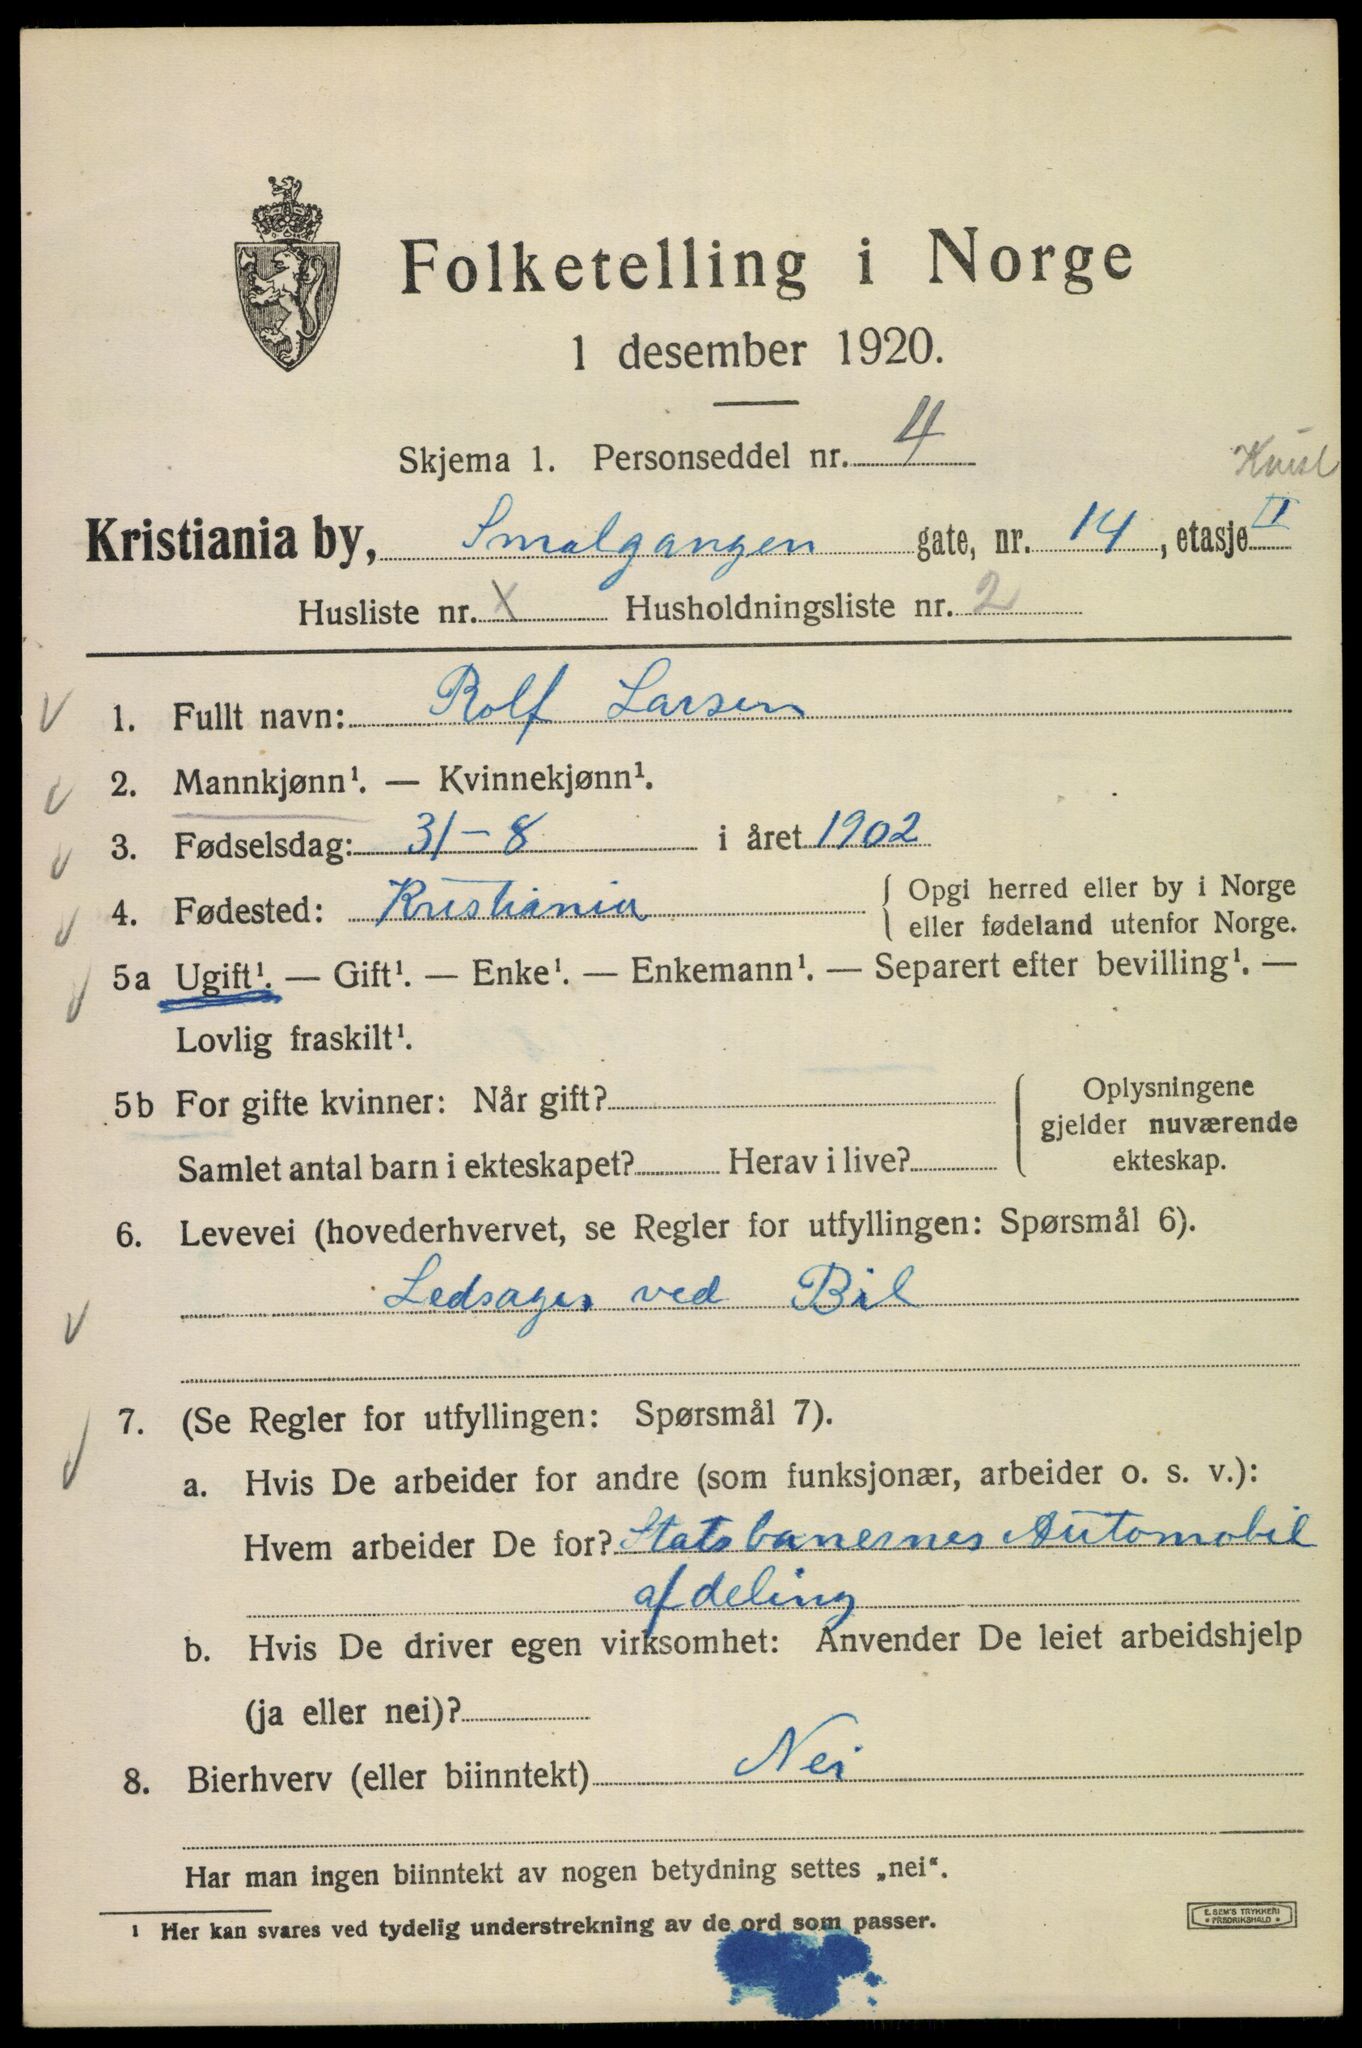 Folketelling i Norge
1 desember 1920.
Skjema 1. Personseddel nr. 4
Kvist
Kristiania by, Smalgangen gate, nr. 14, etasje II
Husliste nr. X Husholdningsliste nr. 2
1. Fullt navn: Rolf Larsen
2. Mannkjønn¹. — Kvinnekjønn¹.
3. Fødselsdag: 31-8 i året 1902
4. Fødested: Kristiania { Opgi herred eller by i Norge
eller fødeland utenfor Norge.
5a Ugift¹. — Gift¹. — Enke¹. — Enkemann¹. — Separert efter bevilling¹. —
Lovlig fraskilt¹.
5b For gifte kvinner: Når gift?
Samlet antal barn i ekteskapet? Herav i live?
Oplysningene
gjelder nuværende
ekteskap.
6. Levevei (hovederhvervet, se Regler for utfyllingen: Spørsmål 6).
Ledsager ved Bil
7. (Se Regler for utfyllingen: Spørsmål 7).
a. Hvis De arbeider for andre (som funksjonær, arbeider o. s. v.):
Hvem arbeider De for? Statsbanernes Automobil
afdeling
b. Hvis De driver egen virksomhet: Anvender De leiet arbeidshjelp
(ja eller nei)?
8. Bierhverv (eller biinntekt) Nei
Har man ingen biinntekt av nogen betydning settes „nei“.
¹ Her kan svares ved tydelig understrekning av de ord som passer.
E. SEM'S TRYKKERI
* FREDRIKSHALD *